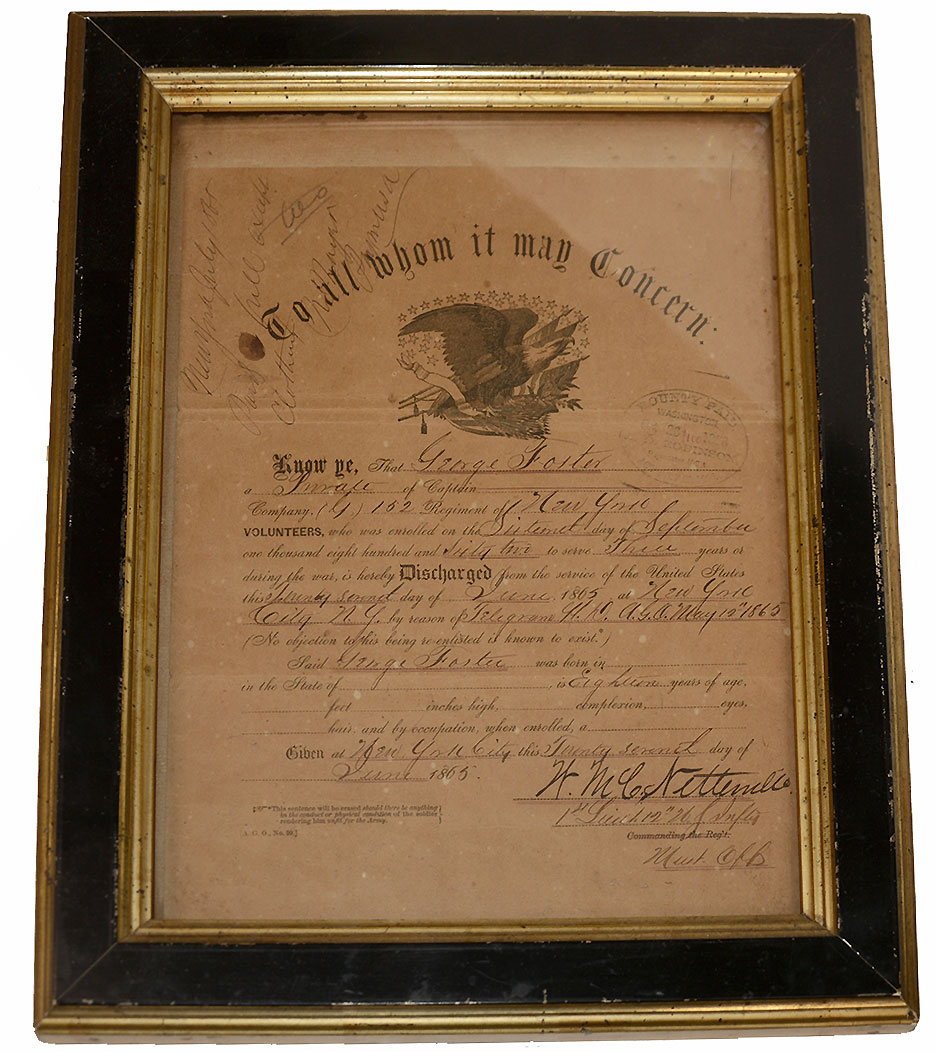 New York July 1865
Paid in full except
Clothing
To all whom it may Concern:
BOUNTY PAID
WASHINGTON
ROBINSON
Know ye, That George Foster
a Private of Captain
Company, (G) 152 Regiment of New York
VOLUNTEERS, who was enrolled on the day of September
one thousand eight hundred and Sixty two to serve Three years or
during the war, is hereby Discharged from the service of the United States
this Twenty seventh day of June 1865 at New York
City N.Y. by reason of Telegram W.D. A.G.O. May 1865
(No objection to his being re-enlisted is known to exist.*)
Said George Foster was born in
in the State of , is Eighteen years of age,
feet inches high, complexion, eyes,
hair and by occupation, when enrolled, a
Given at New York City this Twenty seventh day of
June 1865.
W. McC. Netterville
1st Lieut 12th U.S. Infty
[*This sentence will be erased should there be anything
Commanding the Reg't.
in the conduct or physical condition of the soldier
rendering him unfit for the Army.]
[A. G. O., No. 99.]
Must. Off.